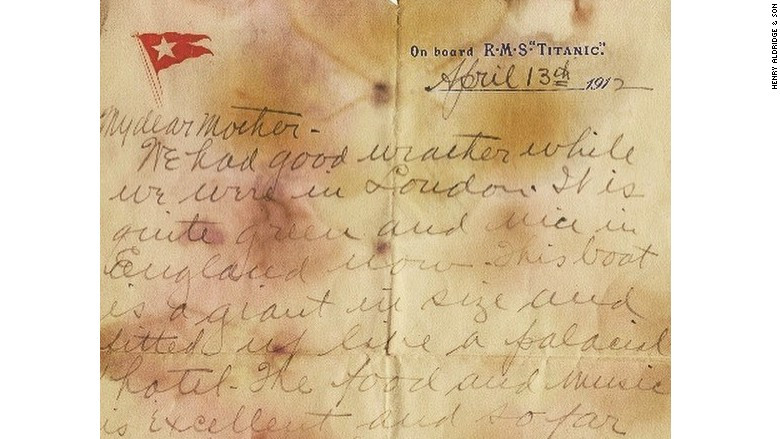 On board R·M·S "TITANIC."
April 13th 1912
My dear Mother-
We had good weather while
we were in London. It is
quite green and nice in
England now. This boat
is a giant in size and
fitted up like a palacial
hotel. The food and music
is excellent and so far
HENRY ALDRIDGE & SON